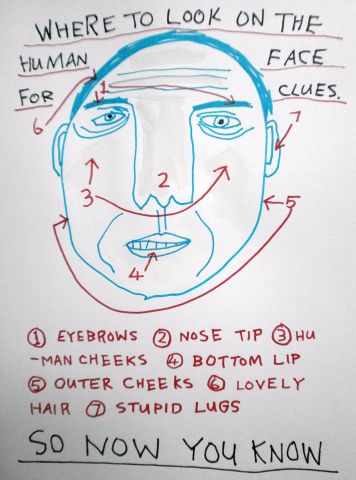 WHERE TO LOOK ON THE
HUMAN FACE
FOR CLUES.
1
6
7
2
3
5
4
① EYEBROWS ② NOSE TIP ③ HU
-MAN CHEEKS ④ BOTTOM LIP
⑤ OUTER CHEEKS ⑥ LOVELY
HAIR ⑦ STUPID LUGS
SO NOW YOU KNOW